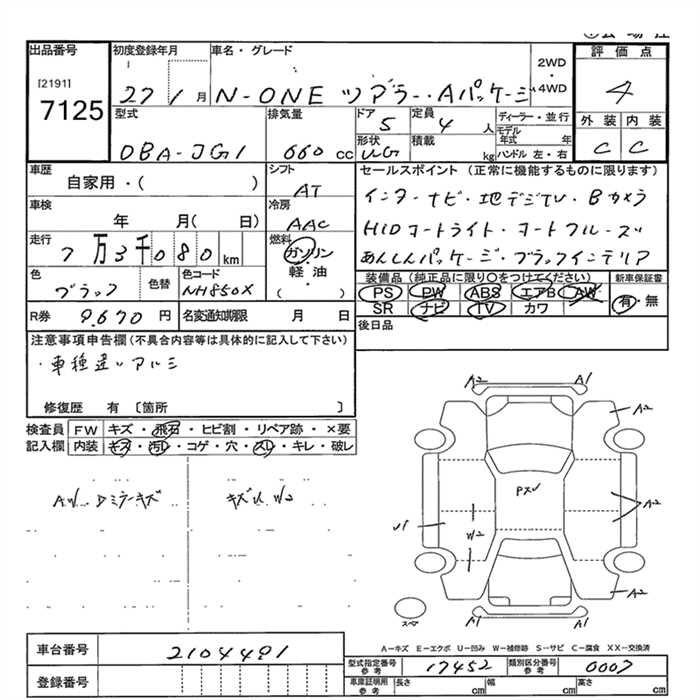 出品番号
[2191]
7125
初度登録年月
27 1 月
車名・グレード
N-ONE ツアラー・Aパッケージ
2WD
・
4WD
評価点
4
外装 内装
C C
型式
DBA-JG1
排気量
660 cc
ドア
5
定員
4 人
ディーラー・並行
モデル年式 年
形状
積載
kg
ハンドル 左・右
車歴
自家用・( )
シフト
AT
車検
年 月( 日)
冷房
AAC
走行
7万3千080 km
燃料
ガソリン
軽油
・
( )
色
ブラック
色替
色コード
NH850X
R券
9,670 円
名変通知期限 月 日
セールスポイント (正常に機能するものに限ります)
インターナビ・地デジTV・Bカメラ
HIDコートライト・コートクルーズ
あんしんパッケージ・ブラックインテリア
装備品 (純正品に限り○をつけてください)
新車保証書
PS PW ABS エアB AW
SR ナビ TV カワ
有・無
後日品
注意事項申告欄 (不具合内容等は具体的に記入して下さい)
・車種違いアルミ
修復歴 有 〔箇所 〕
検査員記入欄
FW キズ・飛石・ヒビ割・リペア跡・×要
内装 キズ・汚レ・コゲ・穴・スレ・キレ・破レ
AW、Dミラーキズ
キズU W2
A2 A1
A2
PXW
A2
U1
W2
A2
A1 A1
スペア
A-キズ E-エクボ U-凹み W-補修跡 S-サビ C-腐食 XX-交換済
車台番号
2104491
登録番号
型式指定番号 参考
17452
類別区分番号 参考
0007
車庫証明用 参考
長さ cm 幅 cm 高さ cm